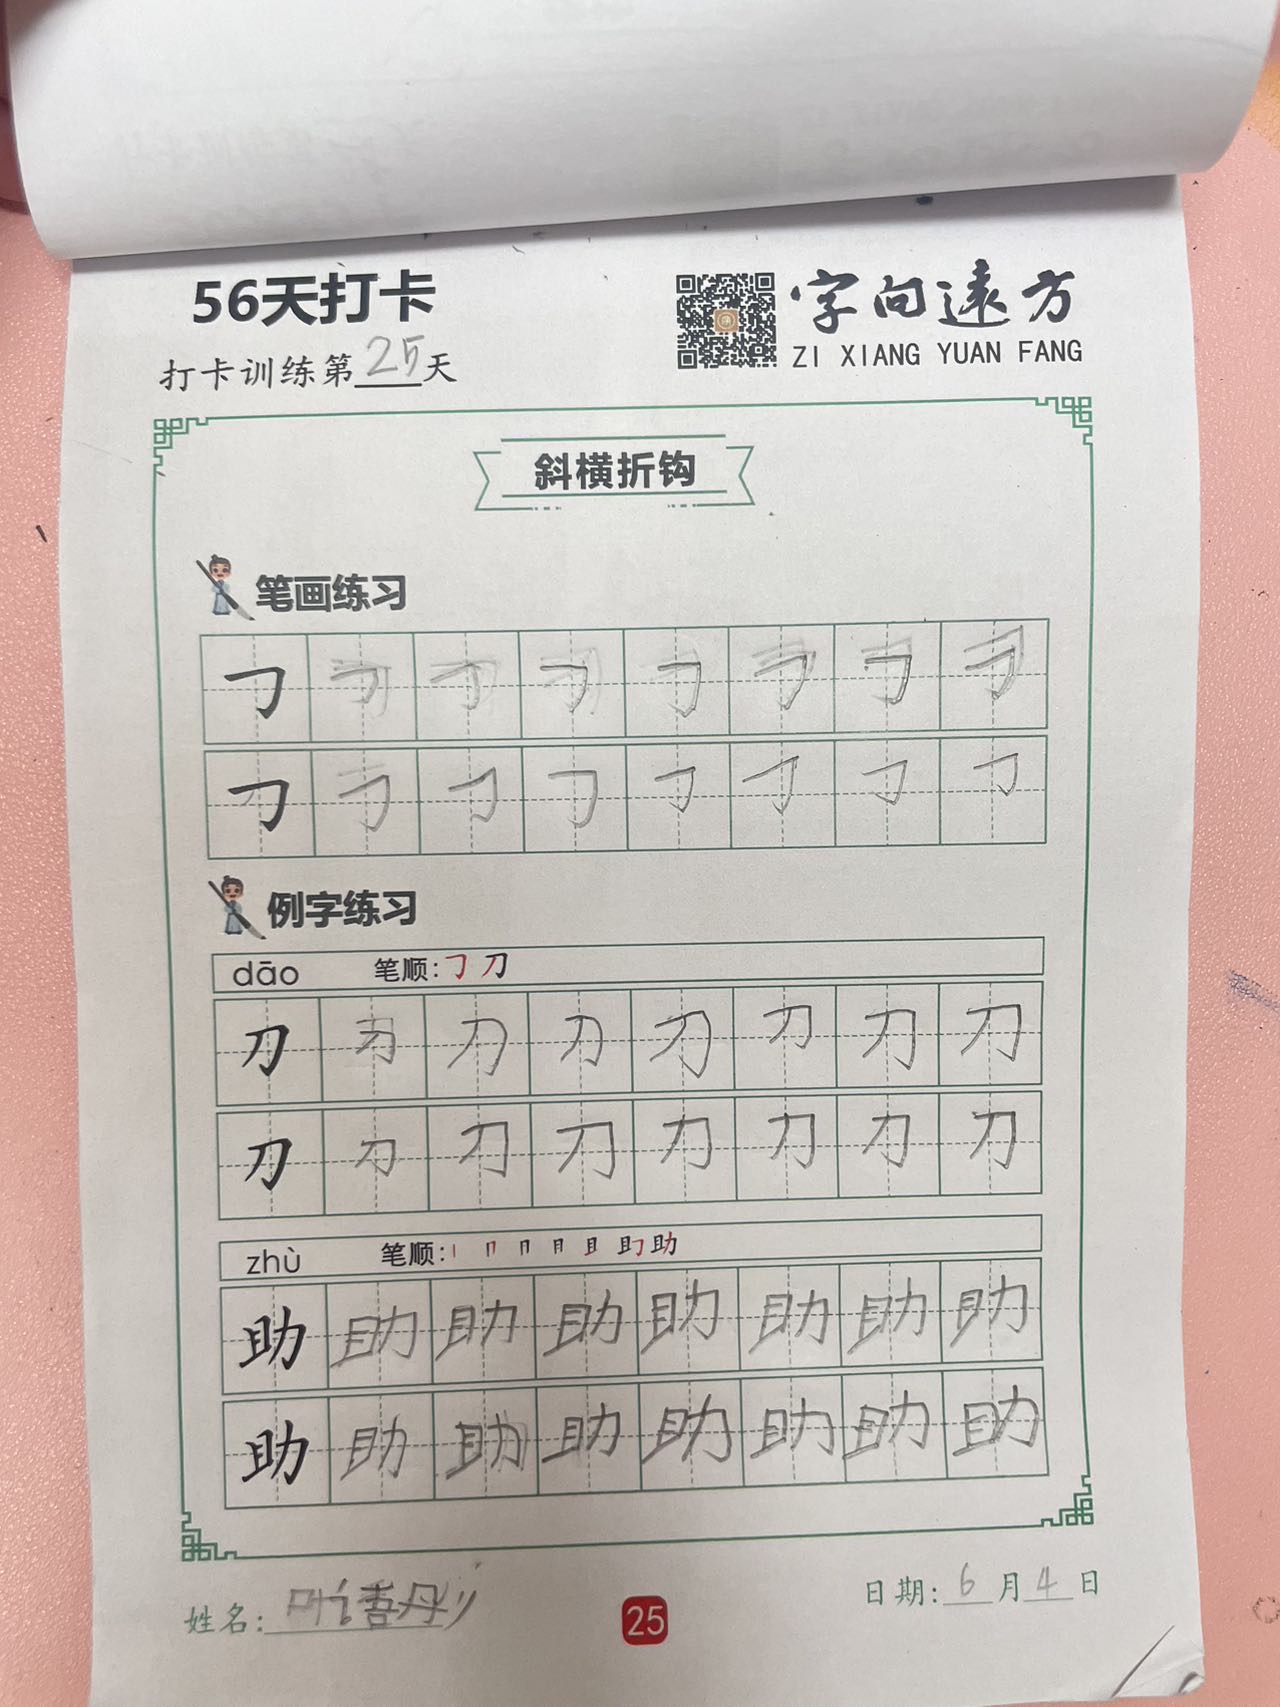 56天打卡
字向遠方
ZI XIANG YUAN FANG
打卡训练第25天
斜横折钩
笔画练习
例字练习
dāo 笔顺:㇆ 刀
刀 刀 刀 刀 刀 刀 刀 刀
刀 刀 刀 刀 刀 刀 刀 刀
zhù 笔顺: 助
助 助 助 助 助 助 助 助
助 助 助 助 助 助 助 助
姓名:
25
日期:6月4日